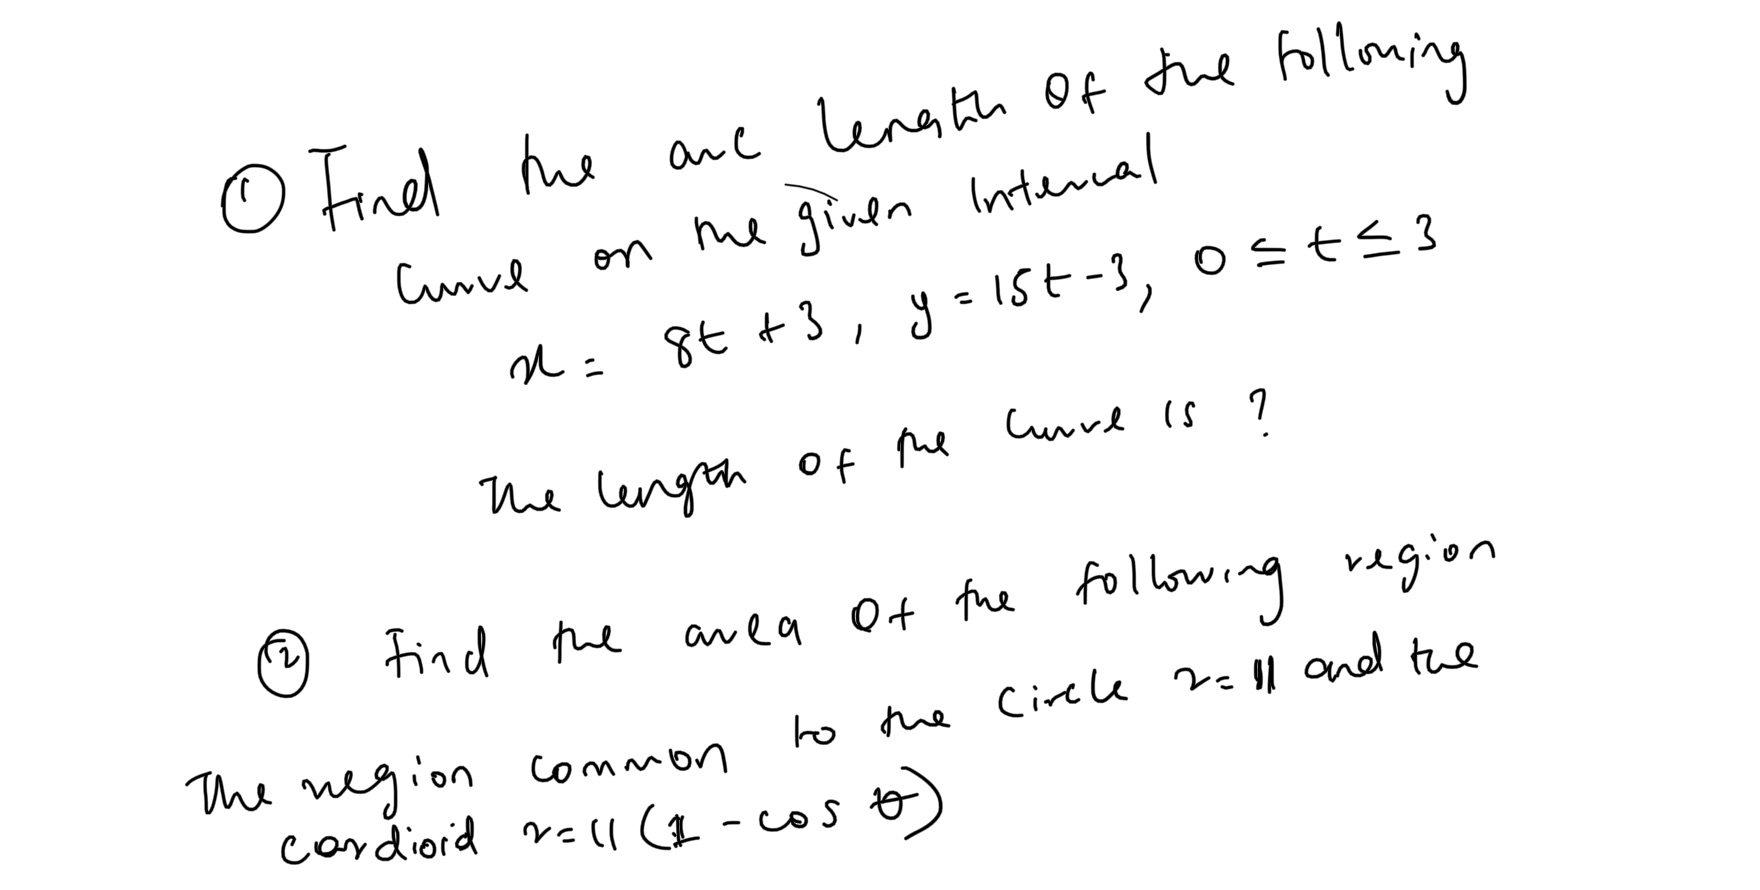 ① Find the arc length of the following
Curve on the given Interval
x = 8t + 3, y = 15t - 3, 0 ≤ t ≤ 3
The length of the curve is ?
② Find the area of the following region
The region common to the circle r = 11 and the
cardioid r = 11 (1 - cos θ)